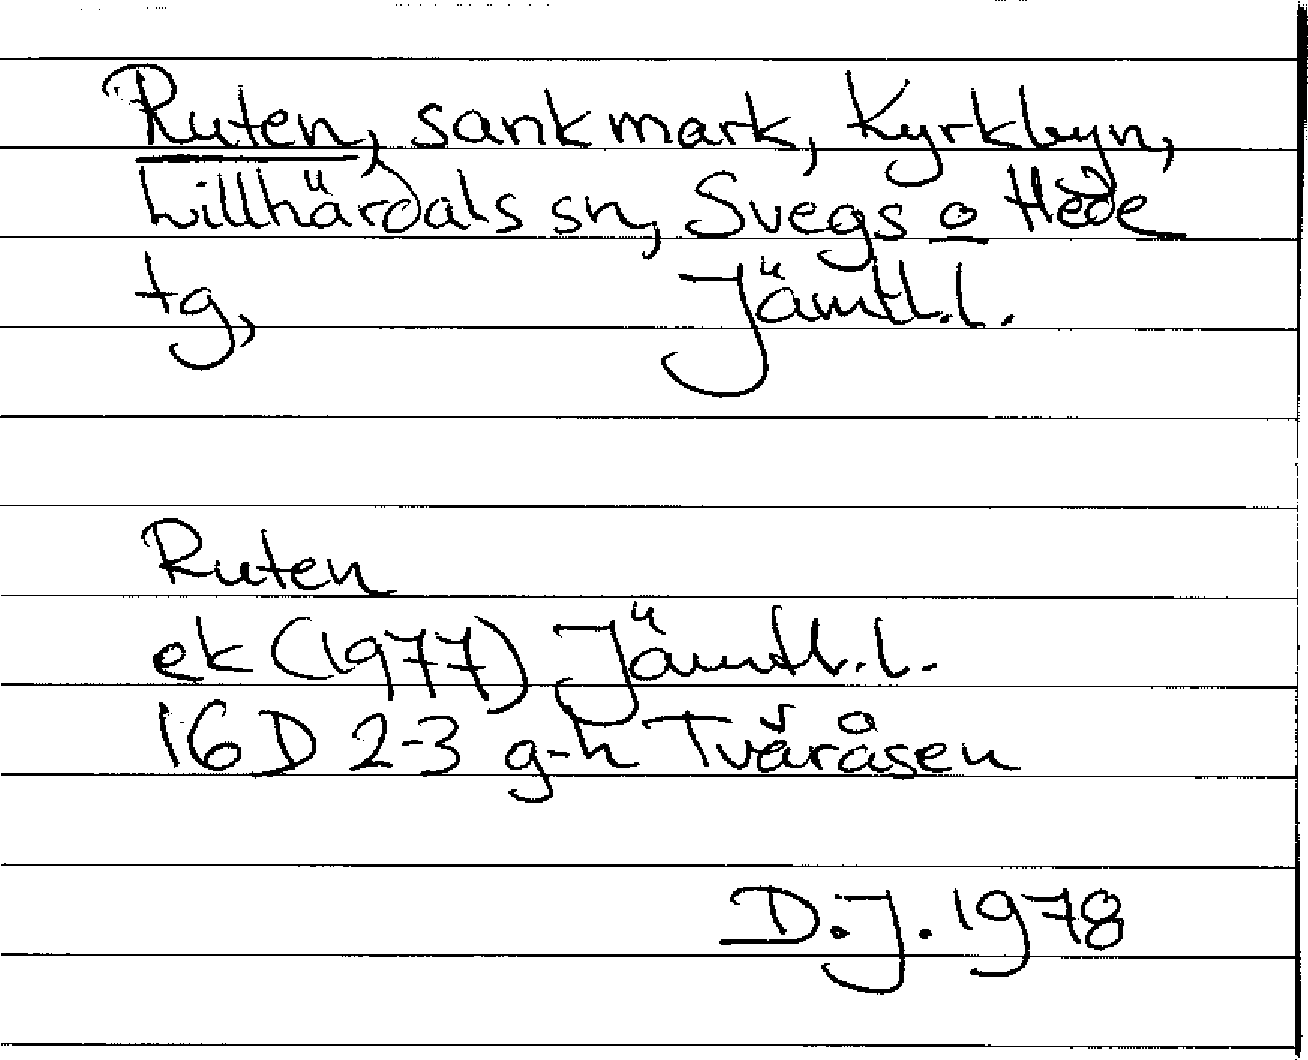 Ruten, sankmark, Kyrkbyn,
Lillhärdals sn, Svegs o Hede
tg, Jämtl.l.
Ruten
ek (1977) Jämtl.l.
16D 2-3 g-h Tväråsen
D.J. 1978